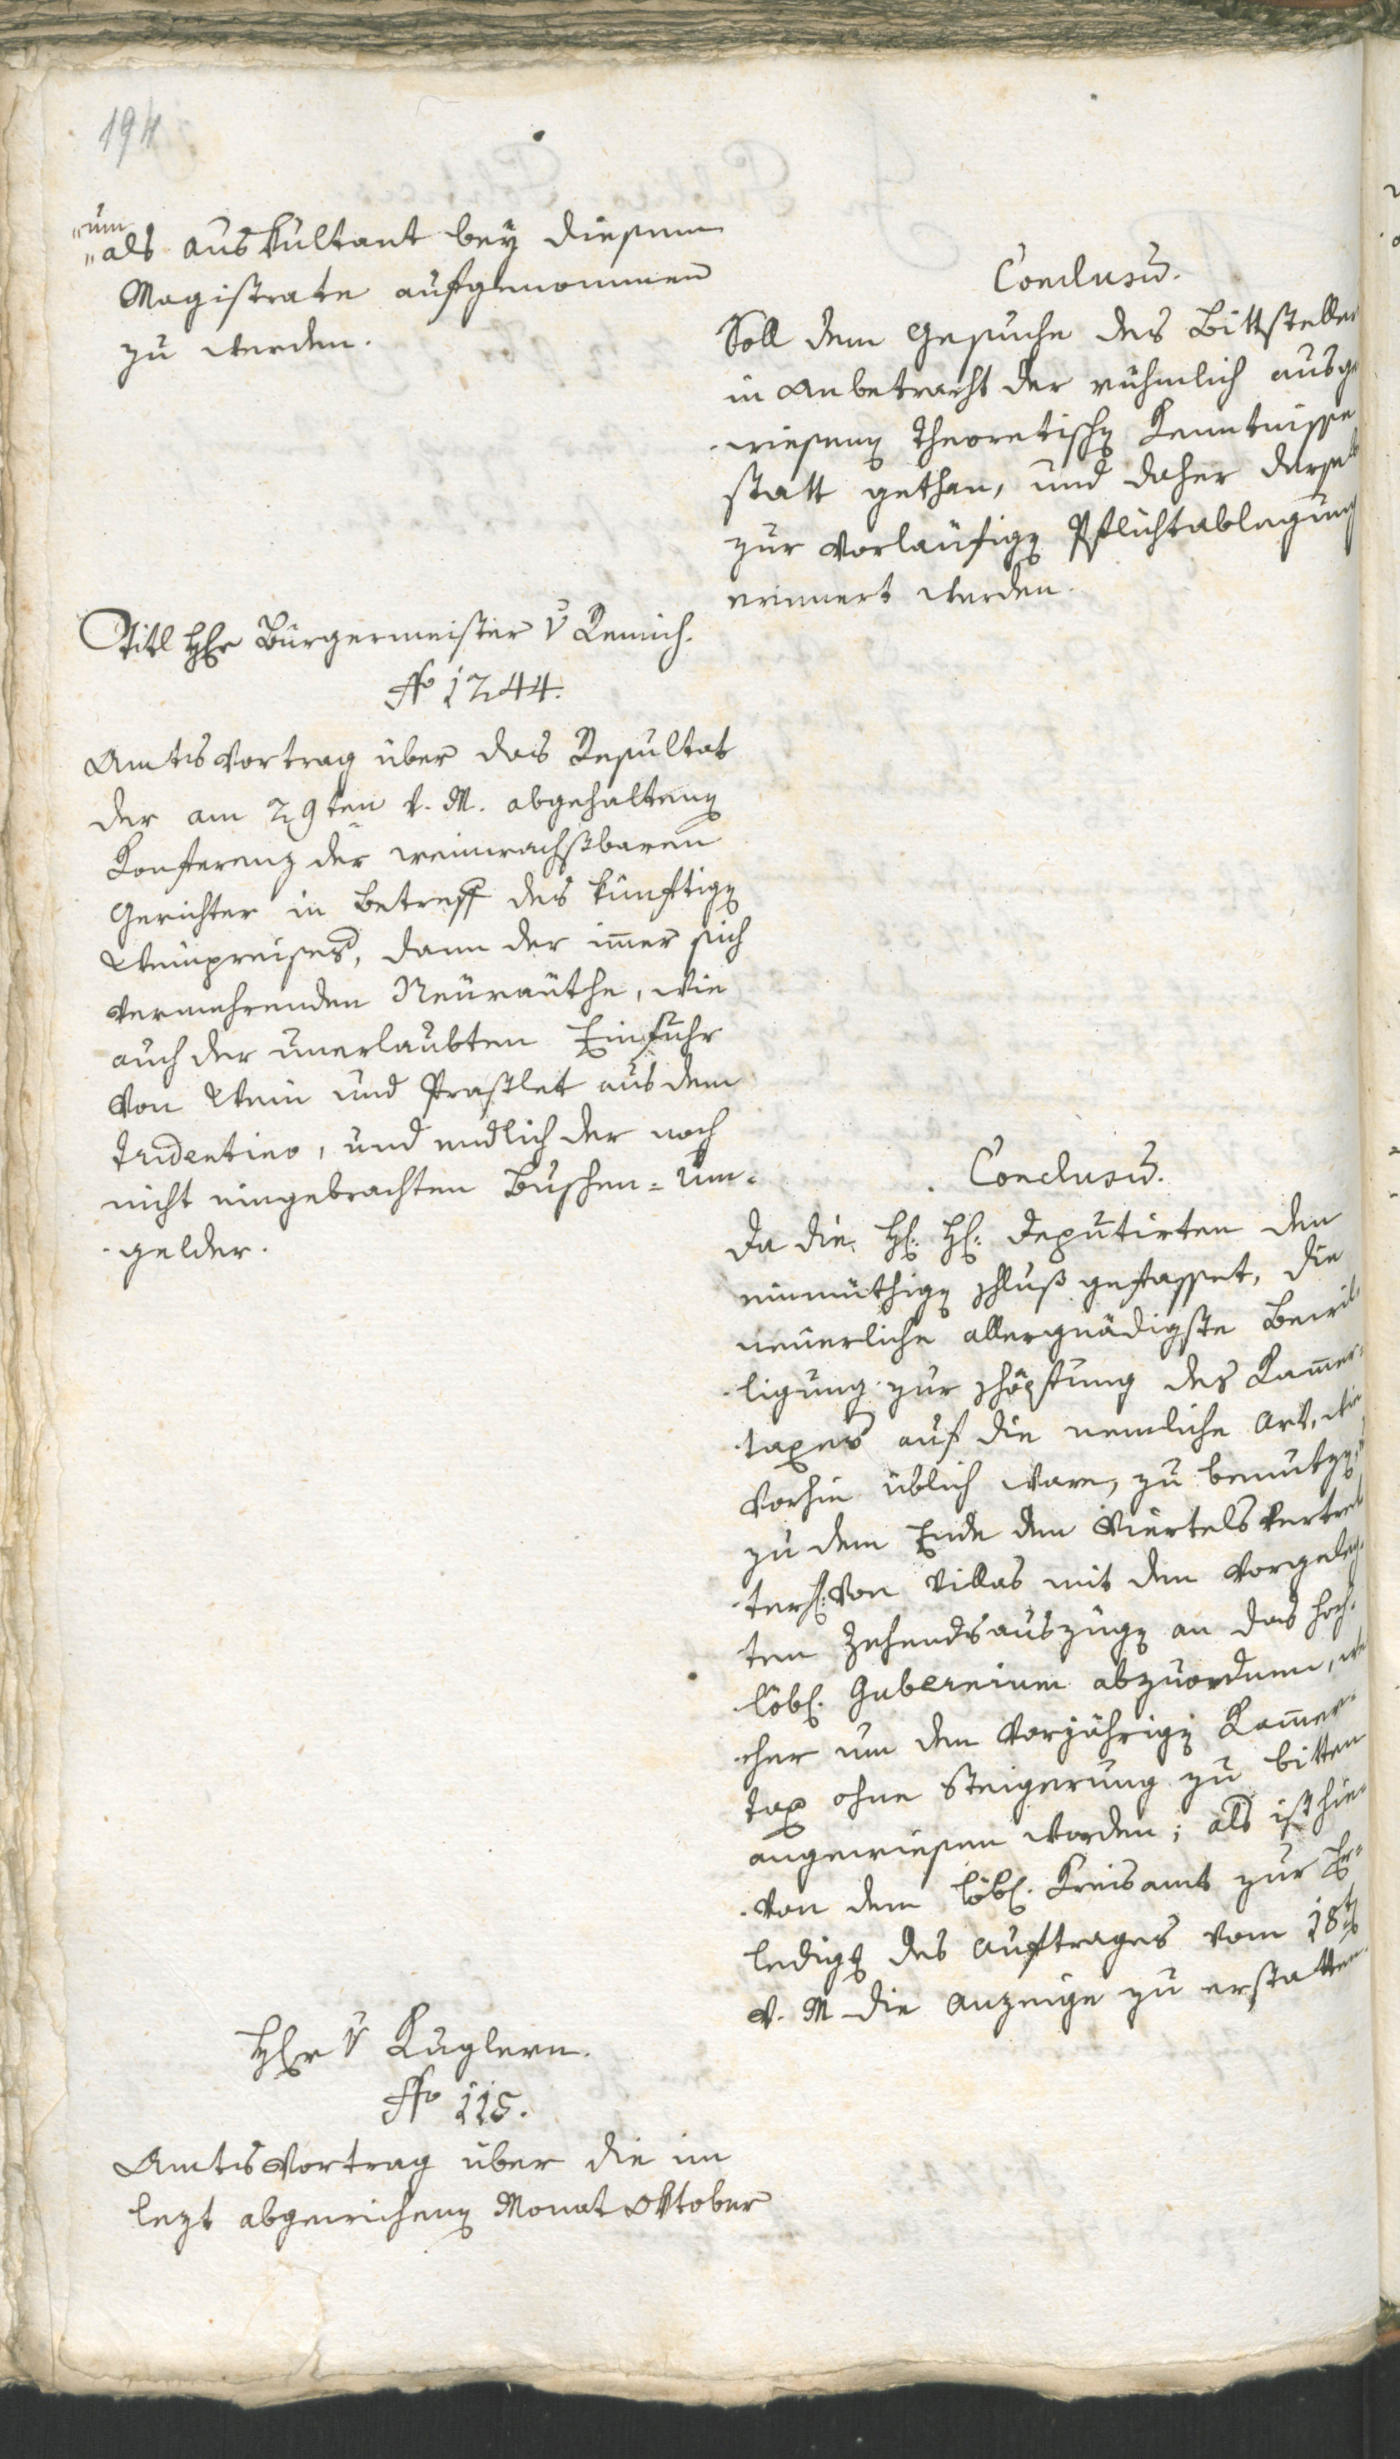 194
"um
"als Auskultant bey diesem
Magistrate aufgenommen
zu werden.
Conclusū.
Soll dem Gesuche des Bittsteller
in Anbetracht der rühmlich ausge
wiesenen theoretischen Kenntnisse
statt gethan, und daher derselb
zur vorläufigen Pflichtablegung
erinnert werden.
Titl Herr Bürgermeister v Remich.
No 1244.
Amtsvortrag über das Resultat
der am 29ten v. M. abgehaltenen
Konferenz der weinwachsbaren
Gerichter in Betreff des künftigen
Weinpreises, dann der im̄er sich
vermehrenden Neuräuthe, wie
auch der unerlaubten Einfuhr
von Wein und Praschlet aus dem
Tridentino, und endlich der noch
nicht eingebrachten Buschen-Um-
gelder.
Conclusū.
Da die H: H: Deputirten den
einmüthigen Schluß gefasset, die
neuerliche allergnädigste Bewil
ligung zur Schöpfung des Kam̄er-
taxes auf die nemliche Art, wie
vorhin üblich ware, zu benutzen,
zu dem Ende den Viertelsvertret
ter H: von Villas mit den vorgeleg-
ten Zehendsauszügen an das hoch-
löbl. Gubernium abzuordnen, wel
cher um den vorjährigen Kam̄er-
tax ohne Steigerung zu bitten
angewiesen worden; als ist hie-
von dem löbl. Kreisamt zur Er-
ledigg des Auftrages vom 18ten
v. M die Anzeige zu erstatten.
Herr v Kuglern.
No 115.
Amtsvortrag über die im
lezt abgewichenen Monat Oktober